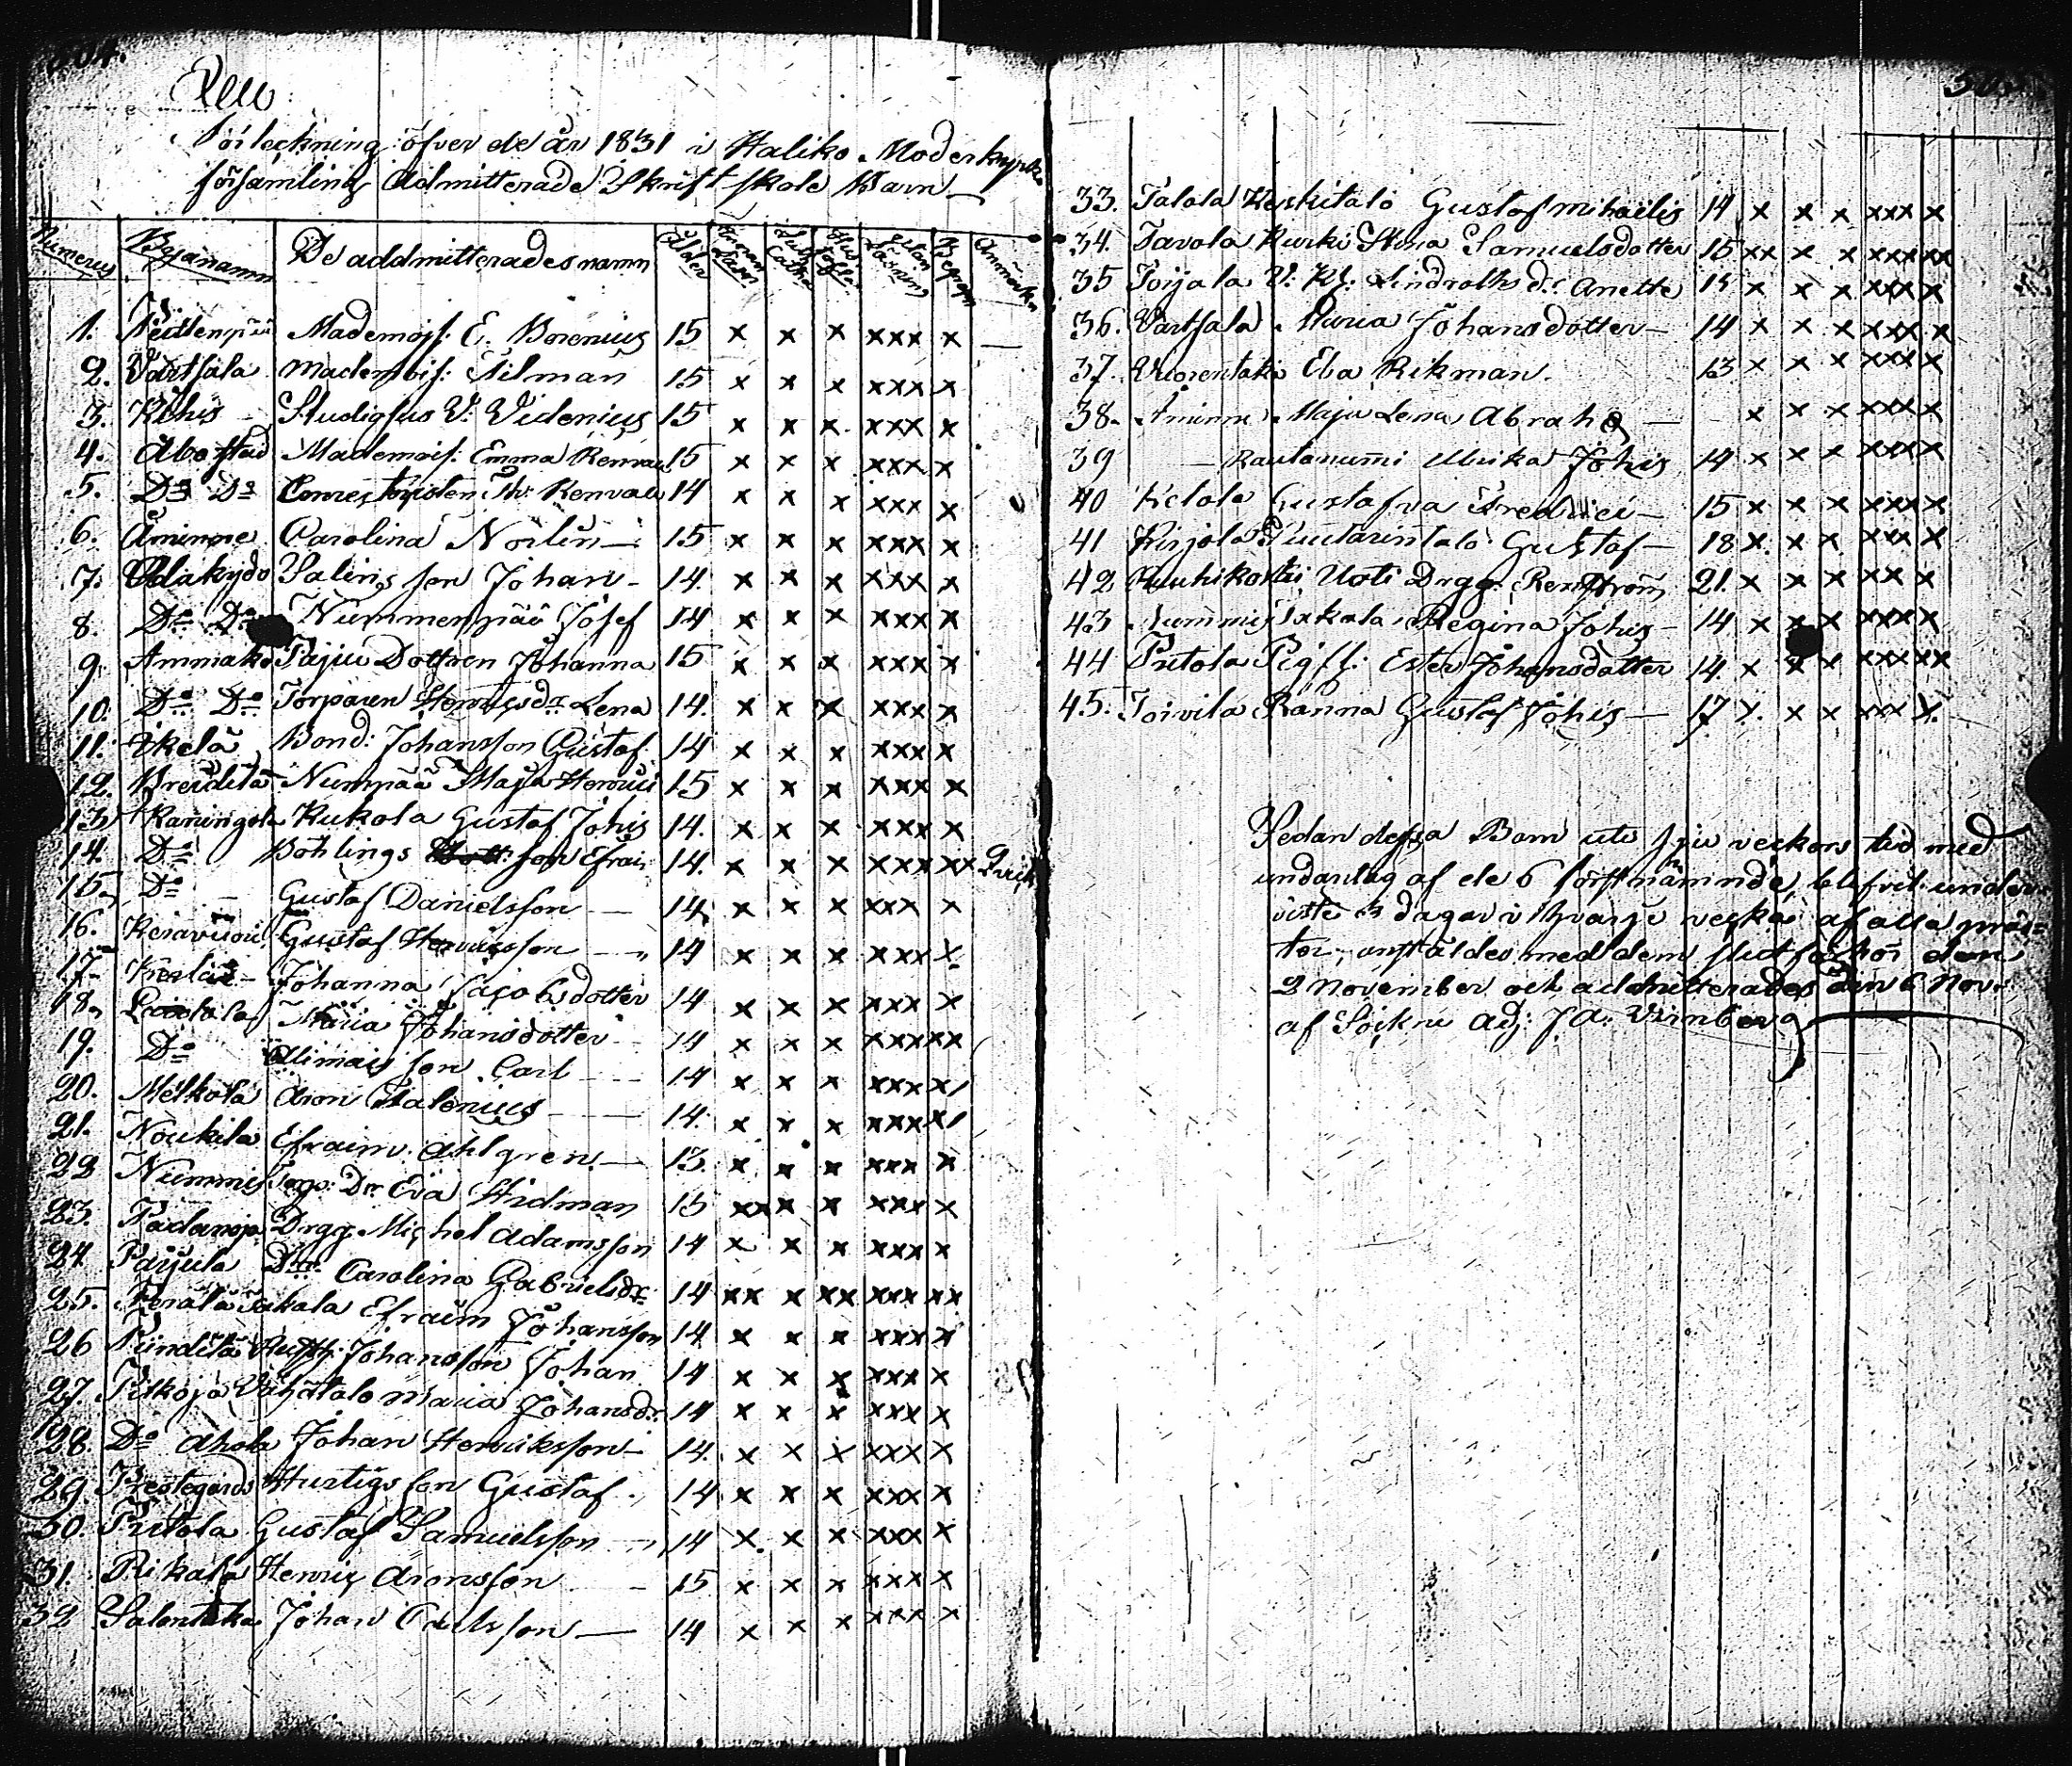 304.
Förteckning öfver de år 1831 i Haliko Moderkyrko
församling Admitterade Skriftskole Barn
Numerus Byanamn De addmitterades namn Ålder Anmärkn
1. Mademois: E. Borenius 15 x x x xxx x —
2. Vartsala Mademois: Tilman 15 x x x xxx x
3. Kihis Studiosus V. Videnius 15 x x x xxx x
4. Åbo stad Mademois: Emma Renvall 15 x x x xxx x
5. Do Do Renvall 14 x x x xxx x
6. Åminne Carolina Norlin — 15 x x x xxx x
7. Salins son Johan - 14. x x x xxx x
8. Do Do Nummenpää Josef 14 x x x xxx x
9. Ammako Paju Dottren Johanna 15 x x x xxx x
10. Do Do Torparen Henricsdr Lena 14. x x x xxx x
11. Ikelä Bond: Johansson Gustaf 14 x x x xxx x
12. Breidilä Numpää Maja Henrici 15 x x x xxx x
13. Kaningola Kukola Gustaf Johis 14. x x x xxx x
14. Do Böhlings son Efraim 14. x x x xxx xx
15. Do Gustaf Danielsson — 14. x x x xxx x
16. Keravuori Gustaf Henricsson — 14 x x x xxx x
17. Johanna Jacobsdotter 14 x x x xxx x
18. Maria Johansdotter 14 x x x xxx xx
19. Do son Carl 14 x x x xxx x
20. Melkola Aron Stalenius — 14. x x x xxx x
21. Noukila Efraim Ahlgren — 13. x x x xxx x
22 Nummis Torp: Dr Eva Hidman 15 xx x x xxx x
23. Drgg. Michel Adamsson 14 x x x xxx x
24. Parjula Dtr Carolina Gabrielsdr 14 xx x xx xxx xx
25. Perälä Takala Efraim Johansson 14 x x x xxx x
26 Johansson Johan 14 x x x xxx x
27. Pitkoja Vähätalo Maria Johansdr. 14 x x x xxx x
28. Do Ahola Johan Henriksson — 14. x x x xxx x
29. Prestegårds Hurtigs son Gustaf. 14 x x x xxx x
30. Pritola Gustaf Samuelsson 14 x x x xxx x
31. Rikala Henric Aronsson 15 x x x xxx x
32 Salontaka Johan Carlsson — 14 x x x xxx x
33. Talola Keskitalo Gustaf Mihaelis 14 x x x xxx x
34. Tavola Kurki Stina Samuelsdotter 15 xx x x xxx xx
35 Toijala Lindroths d: Anette 15 x x x xxx x
36. Vartsala Maria Johansdotter — 14 x x x xxx x
37. Vuorentaka Eba Rikman. 13 x x x xxx x
38. Åminne Maja Lena Abrah — x x x xxx x
39 — Rautanummi Ulrika Johis 14 x x x xxx x
40 Ketola Gustafva Fredrici — 15 x x x xxx x
41 Kirjola Puutarintalo Gustaf — 18 x x x xxx x
42 Uoti Drgg. Renström 21. x x x xx x
43 Nummis Takala Regina Johis — 14 x x x xxx x
44 Pritola Ester Johansdotter 14. x x x xxx xx
45. Toivila Ränna Gustaf Johis — 17 x. x x xxx x.
Sedan dessa Barn uti sju veckors tid med
undantag af de 6 först nämnde, blifvit under-
viste 3 dagar i hvarje vecka af alla präs=
ter, anstäldes med dem slutförhör den
2 November och admitterades den 6 Nov.
af Sockne Adj: J A: Virnberg